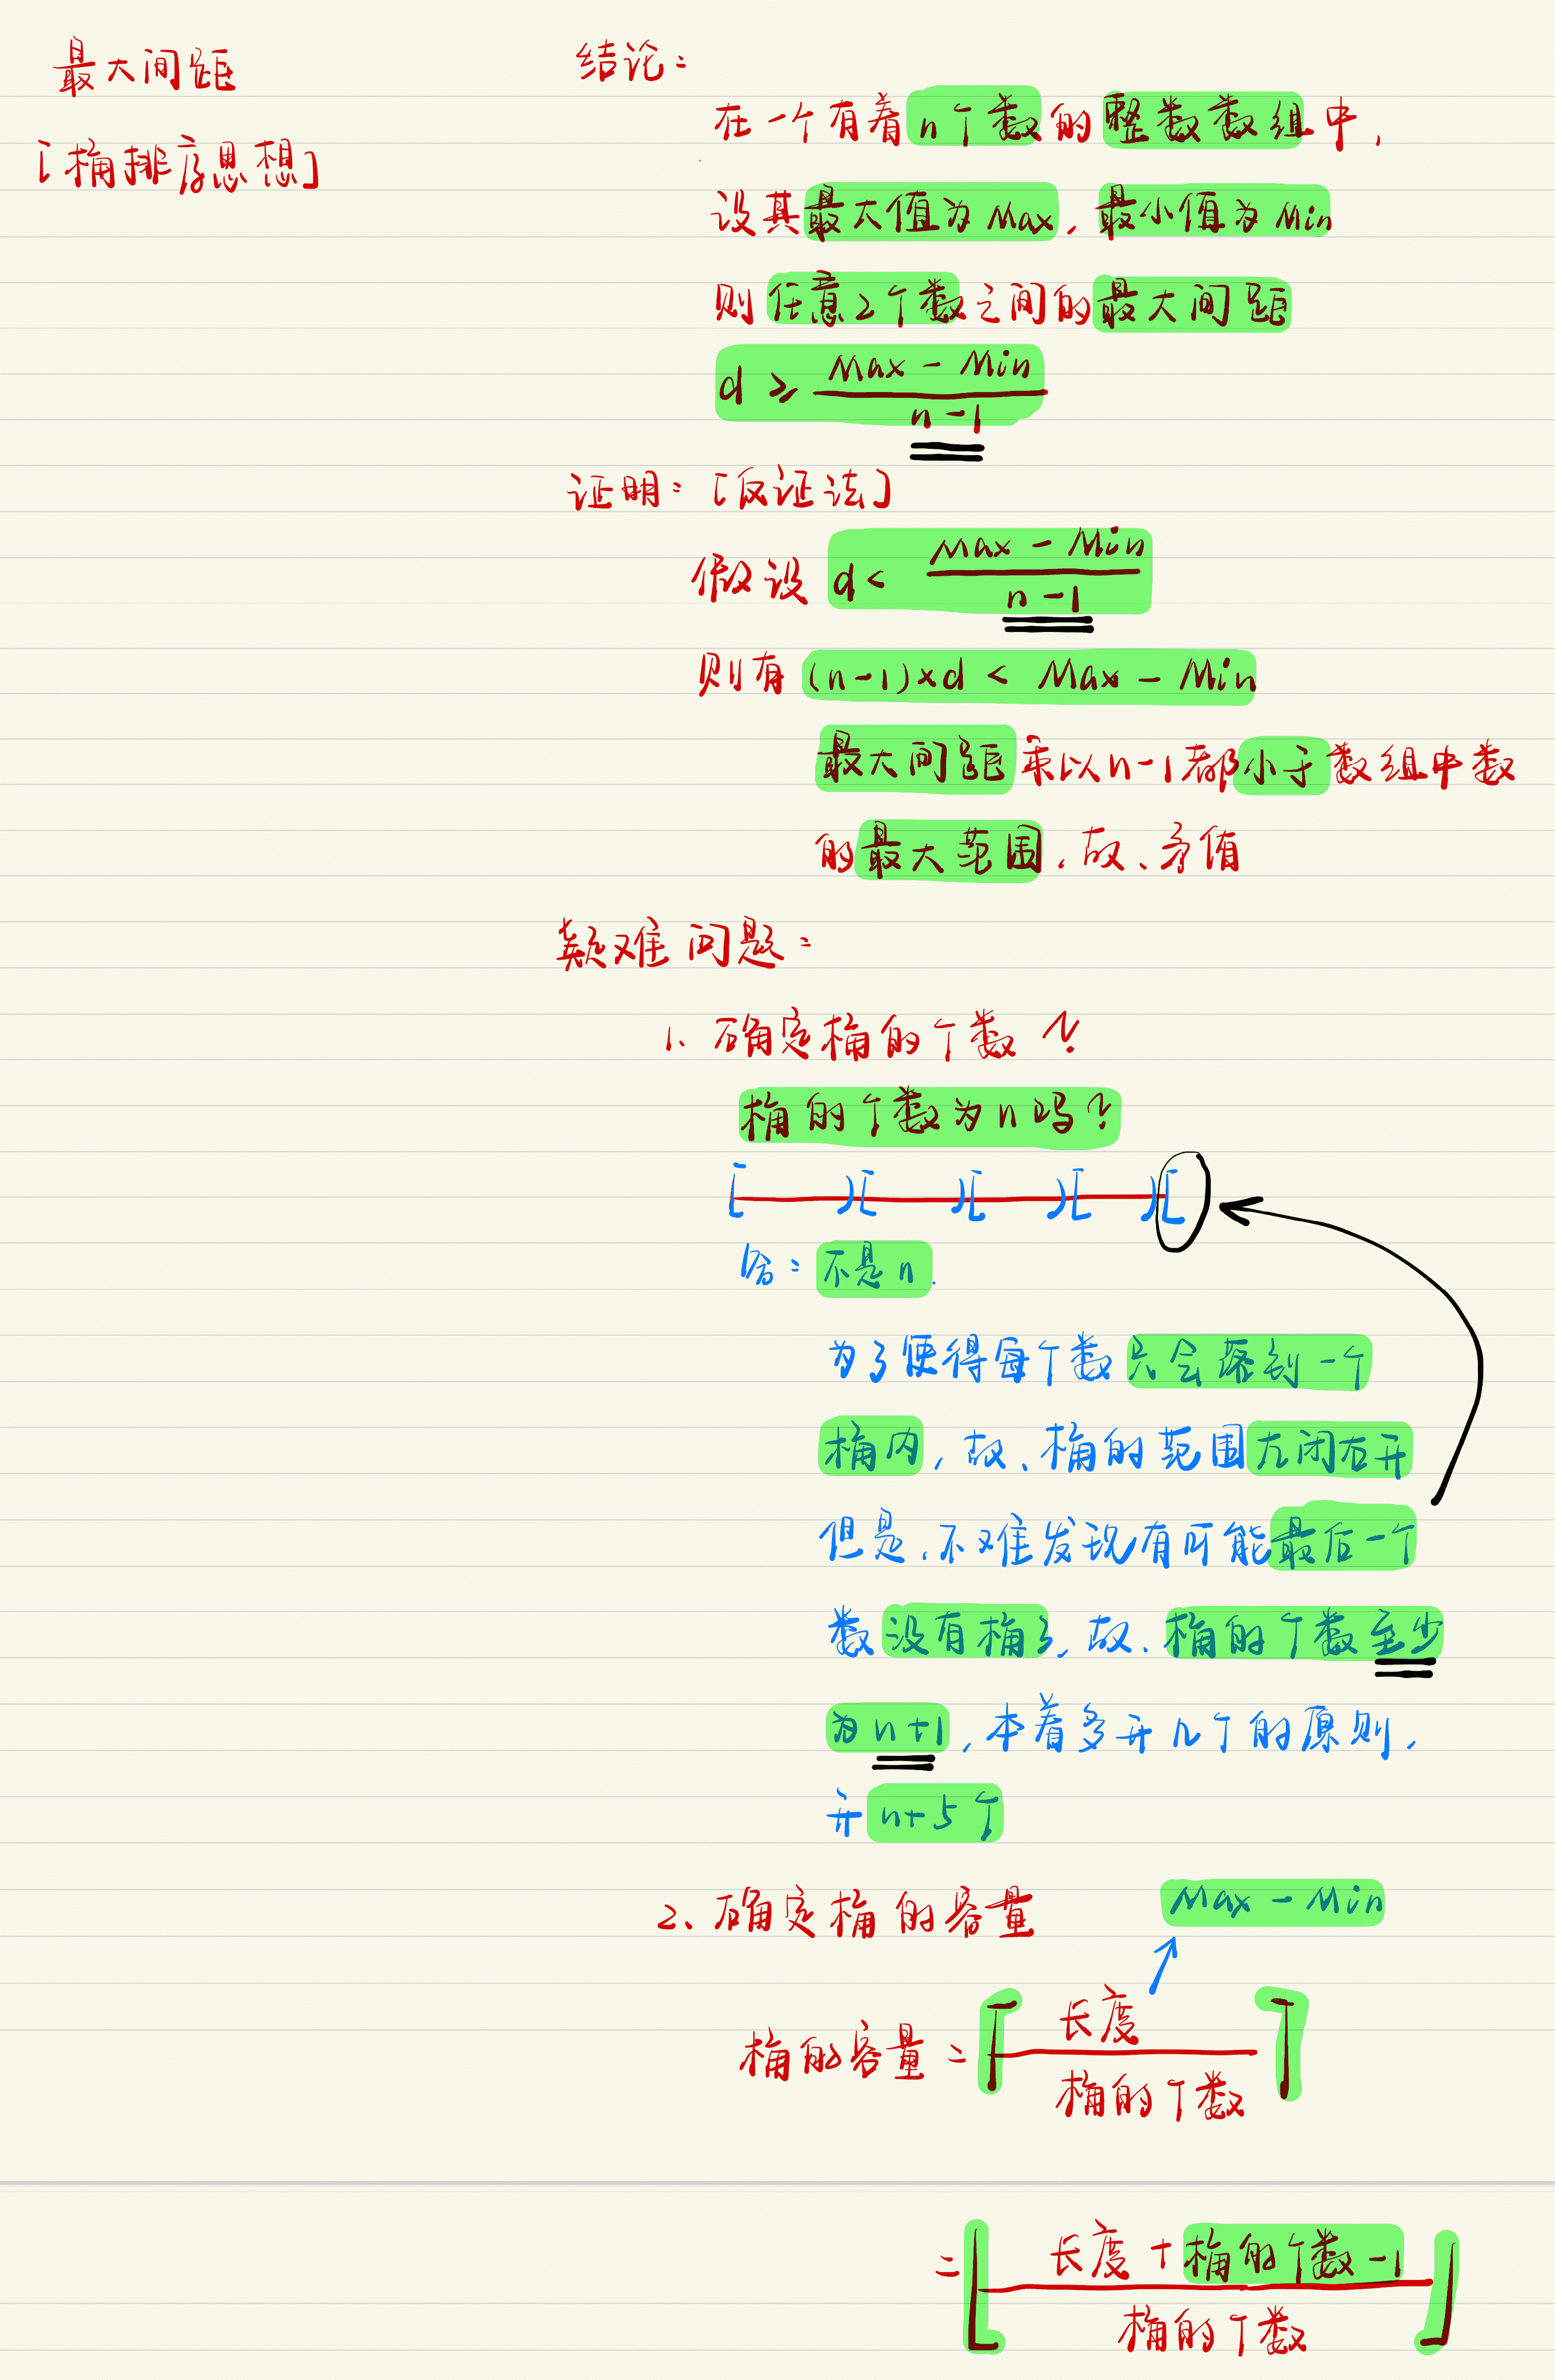 最大间距
[桶排序思想]
结论:
在一个有着n个数的整数数组中,
设其最大值为Max, 最小值为Min
则任意2个数之间的最大间距
d ≥ (Max - Min)/(n-1)
证明: [反证法]
假设 d < (Max - Min)/(n-1)
则有 (n-1)×d < Max - Min
最大间距乘以n-1都小于数组中数
的最大范围, 故、矛盾
疑难问题:
1、确定桶的个数?
桶的个数为n吗?
[ )[ )[ )[ )[
答: 不是n.
为了使得每个数只会落到一个
桶内, 故、桶的范围左闭右开
但是、不难发现有可能最后一个
数没有桶了, 故、桶的个数至少
为n+1, 本着多开几个的原则,
开n+5个
2、确定桶的容量
Max - Min
桶的容量 = ⌈长度/桶的个数⌉
= ⌊(长度+桶的个数-1)/桶的个数⌋